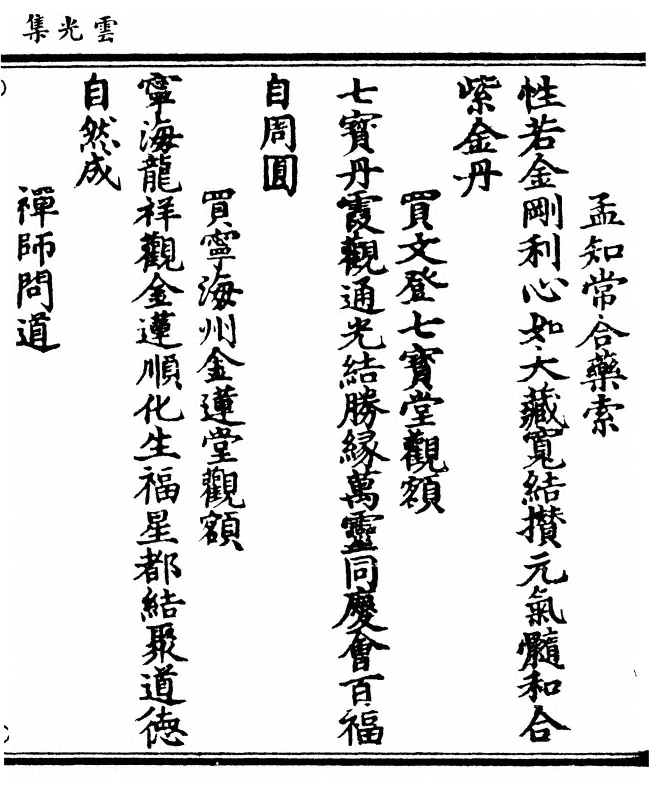 雲光集
孟知常合藥索
性若金剛利心如大藏寬結攅元氣髓和合
紫金丹
買文登七寶堂觀額
七寶丹霞觀通光結勝緣萬靈同慶會百福
自周圓
買寧海州金蓮堂觀額
寧海龍祥觀金蓮順化生福星都結聚道德
自然成
禪師問道